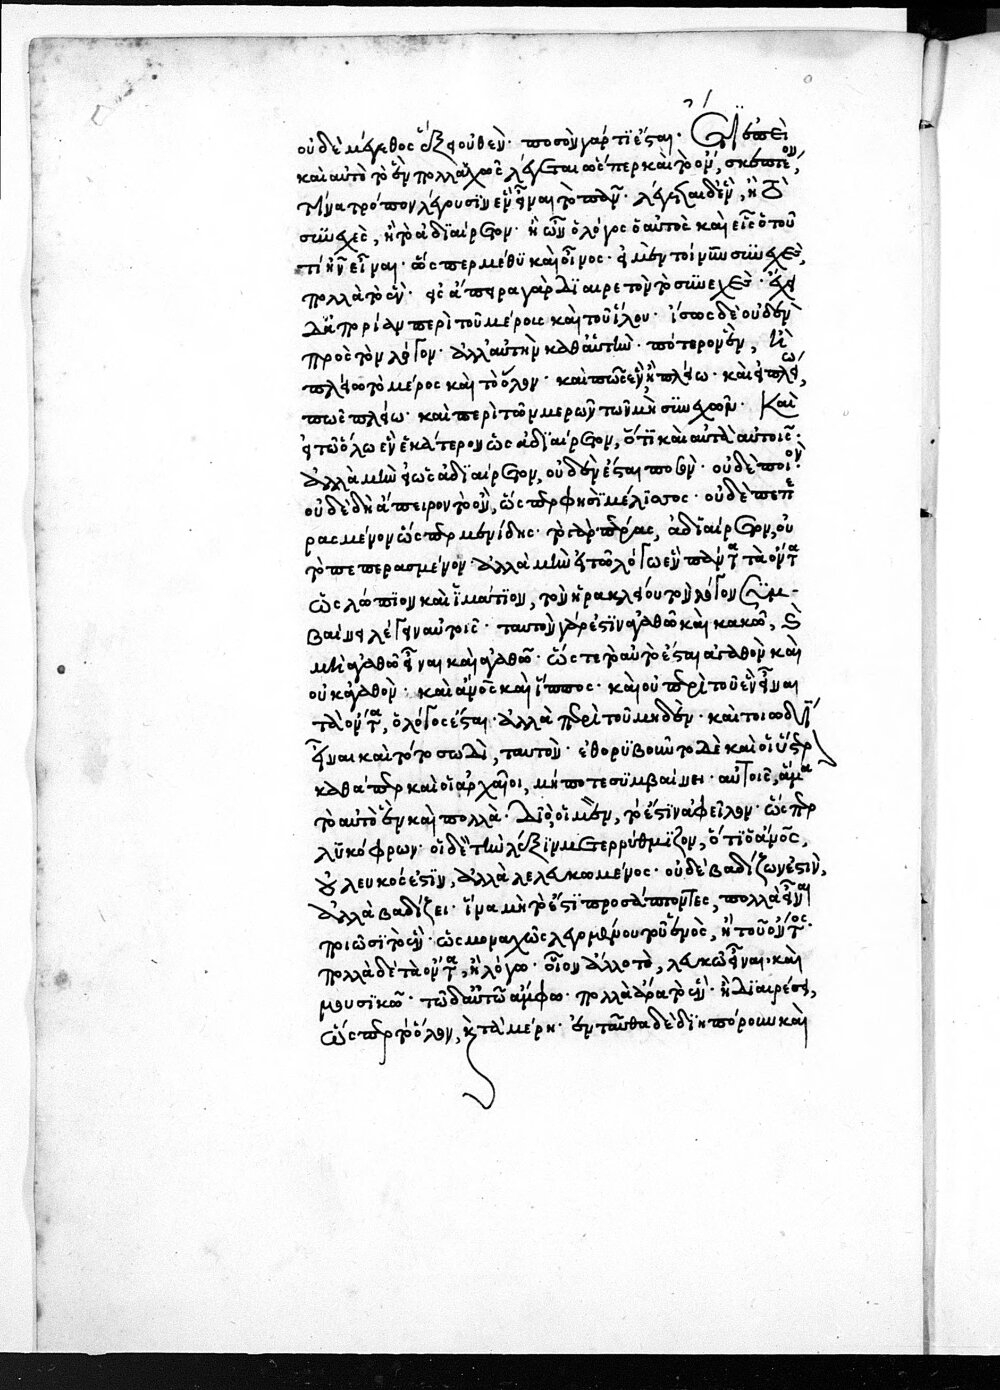 οὐδὲ μέγεθος ἕξει οὐθέν· ποσὸν γάρ τι ἔσται· Ἔτι ἐπεὶ
καὶ αὐτὸ τὸ ἓν πολλαχῶς λέγεται ὥσπερ καὶ τὸ ὄν, σκεπτέον,
τίνα τρόπον λέγουσιν εἶναι τὸ πᾶν· λέγεται δ' ἓν, ἢ τὸ
συνεχὲς, ἢ τὸ ἀδιαίρετον· ἢ ὧν ὁ λόγος ὁ αὐτὸς καὶ εἷς ὁ τοῦ
τί ἦν εἶναι· ὥσπερ μέθυ καὶ οἶνος· εἰ μὲν τοίνυν συνεχὲς,
πολλὰ τὸ ἕν· εἰς ἄπειρα γὰρ διαιρετὸν τὸ συνεχές· ἔχει
δ' ἀπορίαν περὶ τοῦ μέρους καὶ τοῦ ὅλου· ἴσως δὲ οὐδὲν
πρὸς τὸν λόγον· ἀλλ' αὐτὴν καθ' αὑτήν· πότερον ἓν, ἢ
πλείω τὸ μέρος καὶ τὸ ὅλον· καὶ πῶς ἓν, ἢ πλείω· καὶ εἰ πλείω,
πῶς πλείω· καὶ περὶ τῶν μερῶν τῶν μὴ συνεχῶν· Καὶ
εἰ τῷ ὅλῳ ἓν ἑκάτερον ὡς ἀδιαίρετον, ὅτι καὶ αὐτὰ αὑτοῖς·
ἀλλὰ μὴν εἰ ὡς ἀδιαίρετον, οὐδὲν ἔσται ποσὸν· οὐδὲ ποιόν·
οὐδὲ δὴ ἄπειρον τὸ ὂν, ὥσπερ φησὶ μέλισσος· οὐδὲ πεπε
ρασμένον ὥσπερ παρμενίδης· τὸ γὰρ πέρας, ἀδιαίρετον, οὐ
τὸ πεπερασμένον· ἀλλὰ μὴν εἰ τῷ λόγῳ ἓν πάντα τὰ ὄντα
ὡς λώπιον καὶ ἱμάτιον, τὸν ἡρακλείτου τὸν λόγον συμ-
βαίνει λέγειν αὐτοῖς· ταυτὸν γὰρ ἔσται ἀγαθῷ καὶ κακῷ, καὶ
μὴ ἀγαθῷ εἶναι καὶ ἀγαθῷ· ὥστε τὸ αὐτὸ ἔσται ἀγαθὸν καὶ
οὐκ ἀγαθόν· καὶ ἄνθρωπος καὶ ἵππος· καὶ οὐ περὶ τοῦ ἓν εἶναι
τὰ ὄντα, ὁ λόγος ἔσται· ἀλλὰ περὶ τοῦ μηδέν· καὶ τὸ τοιῳδὶ
εἶναι καὶ τὸ τοσῳδὶ, ταυτόν· ἐθορυβοῦντο δὲ καὶ οἱ ὕστερον
καθάπερ καὶ οἱ ἀρχαῖοι, μήποτε συμβαίνει· αὐτοῖς, ἅμα
τὸ αὐτὸ ἓν καὶ πολλά· Διὸ, οἱ μὲν, τὸ ἔστιν ἀφεῖλον· ὥσπερ
λυκόφρων· οἱ δὲ τὴν λέξιν μετερρύθμιζον, ὅτι ὁ ἄνθρωπος,
οὐ λευκός ἐστιν, ἀλλὰ λελεύκωμένος· οὐδὲ βαδίζων ἐστὶν,
ἀλλὰ βαδίζει· ἵνα μὴ τὸ ἔστι προσάπτοντες, πολλὰ εἶναι
ποιῶσι τὸ ἕν· ὡς μοναχῶς λεγομένου τοῦ ἑνὸς, ἢ τοῦ ὄντος·
πολλὰ δὲ τὰ ὄντα, ἢ λόγῳ· οἷον ἄλλο τὸ, λευκῷ εἶναι· καὶ
μουσικῷ· τὸ δ' αὐτὸ ἄμφω· πολλὰ ἄρα τὸ ἕν· ἢ διαιρέσει,
ὥσπερ τὸ ὅλον, καὶ τὰ μέρη· ἐνταῦθα δὲ διηπόρουν καὶ